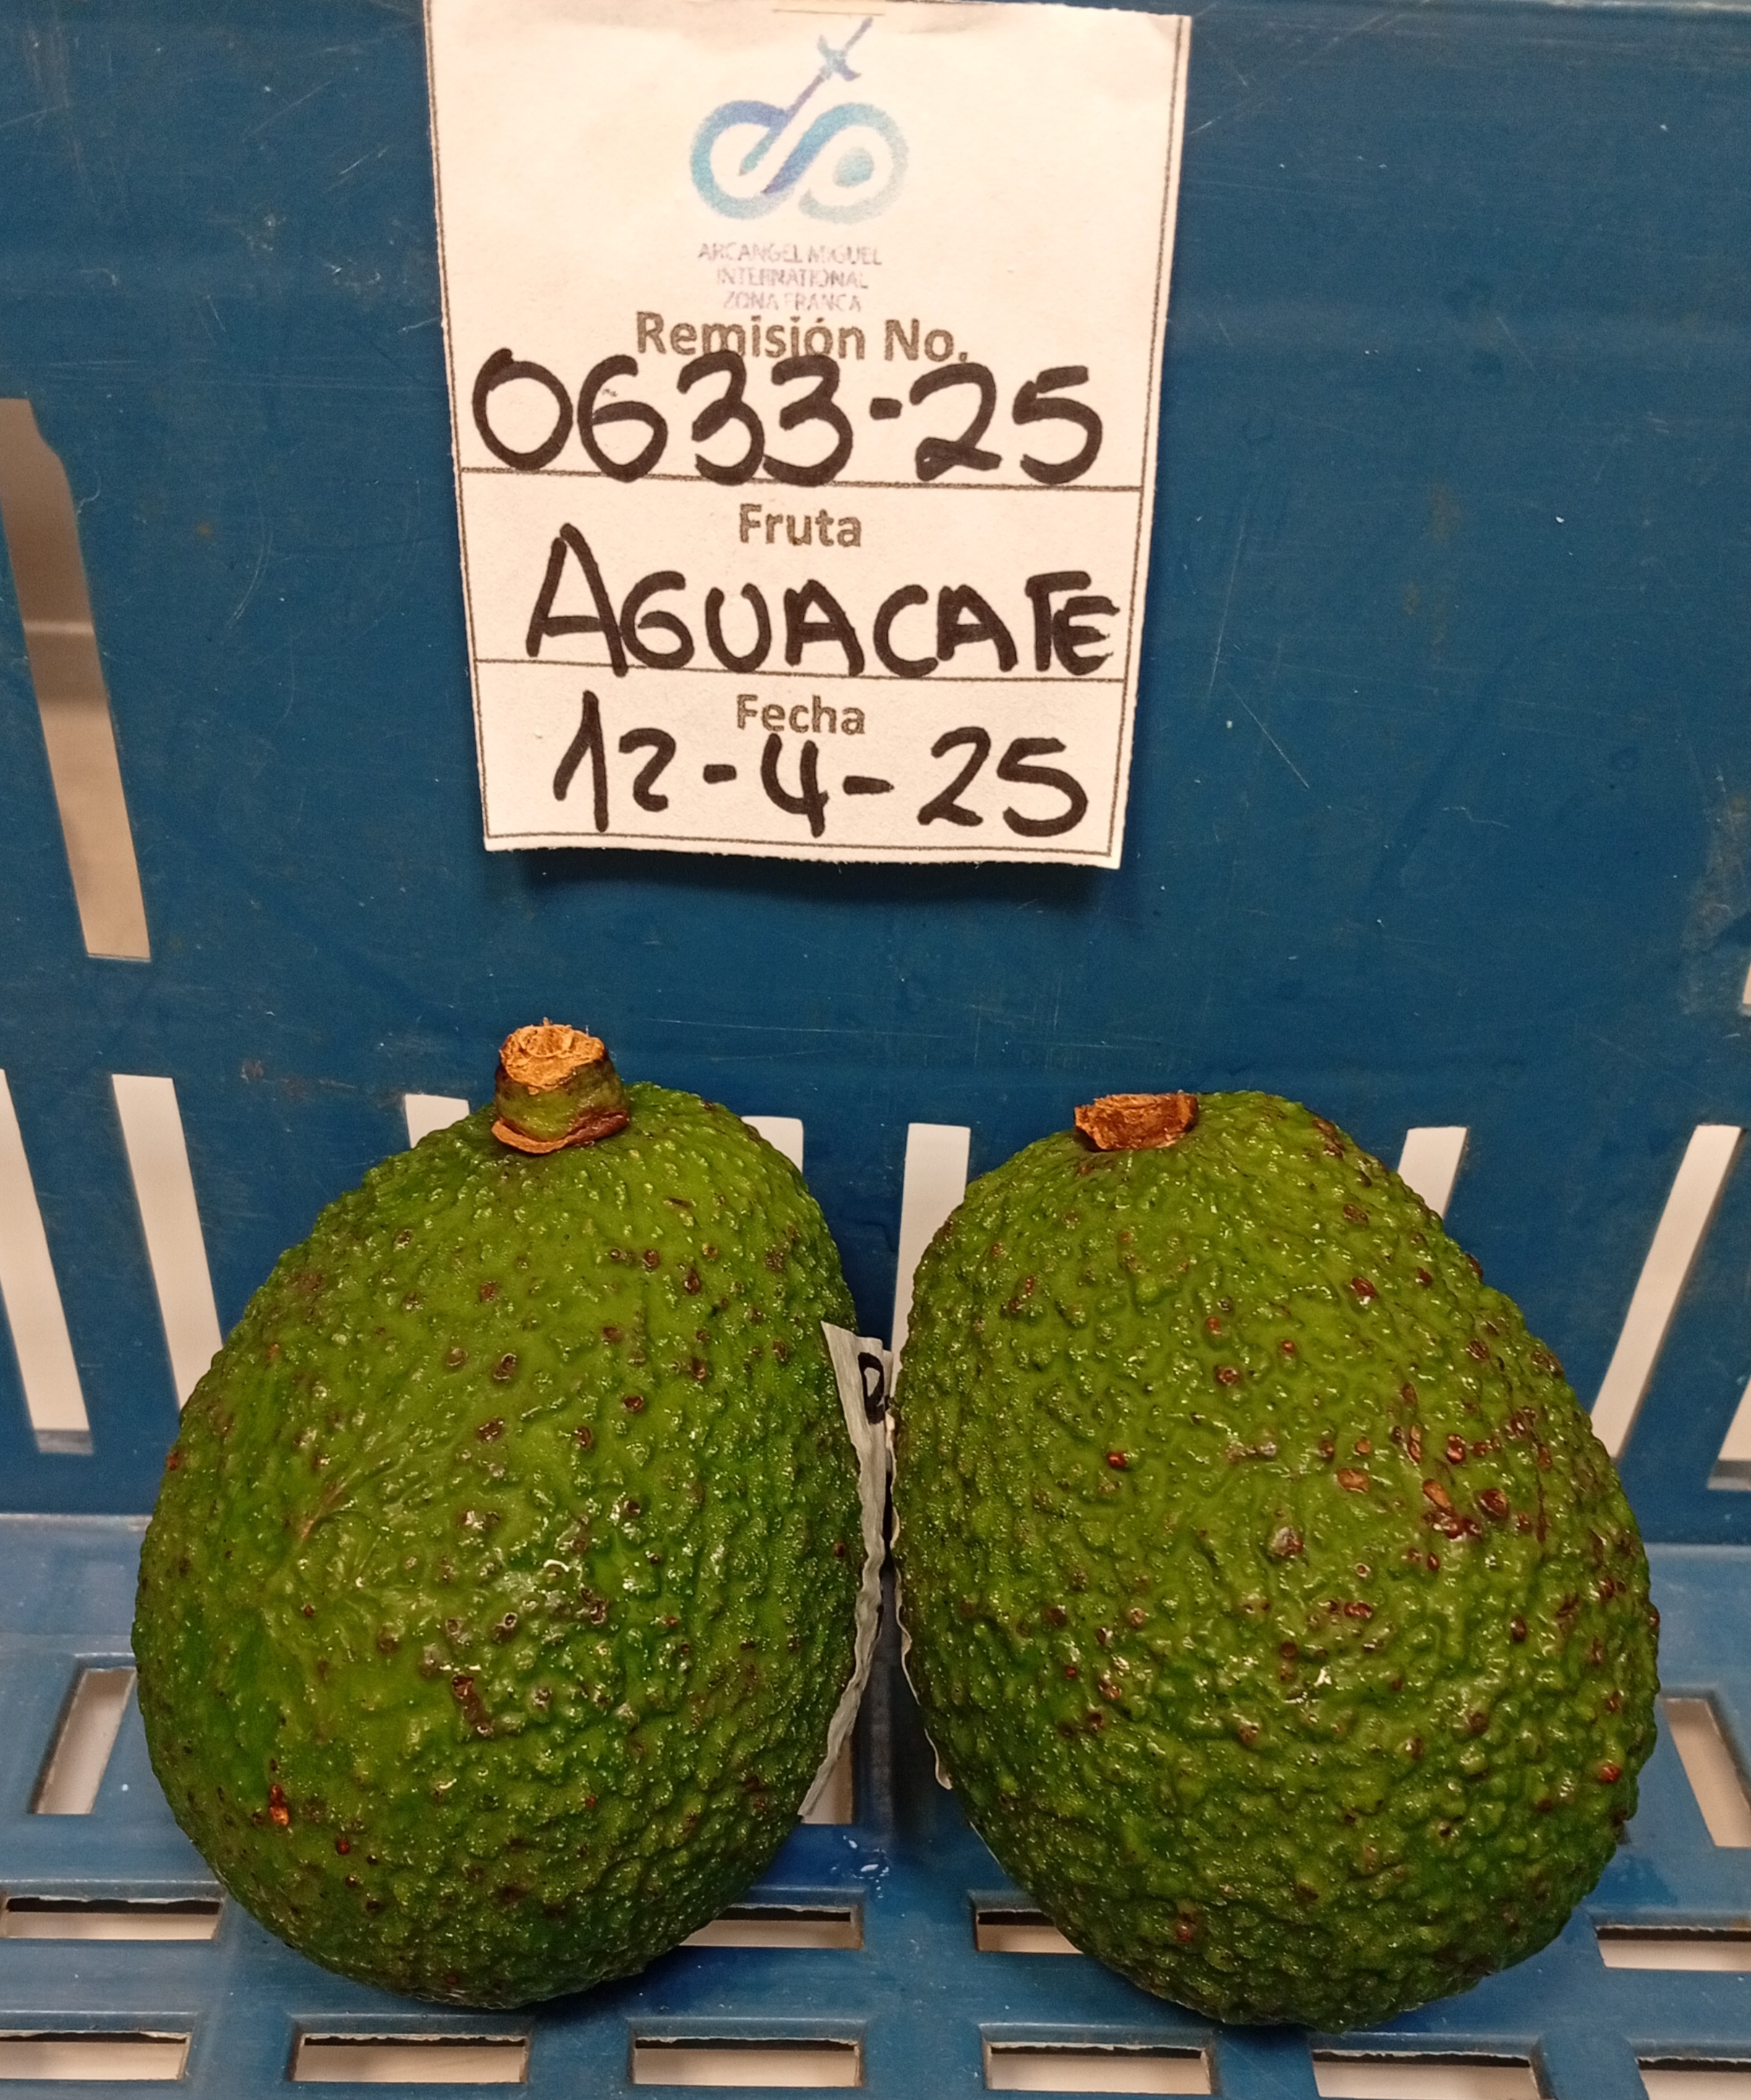 ARCANGEL MIGUEL
INTERNATIONAL
ZONA FRANCA
Remisión No.
0633-25
Fruta
AGUACATE
Fecha
12-4-25